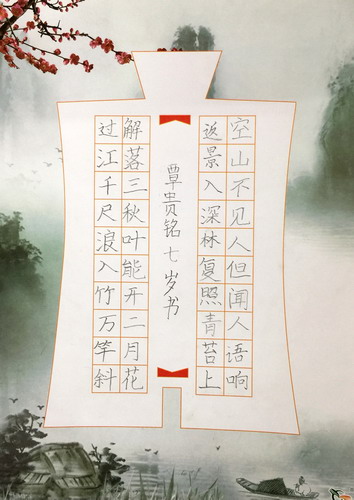 空山不见人但闻人语响
返景入深林复照青苔上
覃贵铭七岁书
解落三秋叶能开二月花
过江千尺浪入竹万竿斜